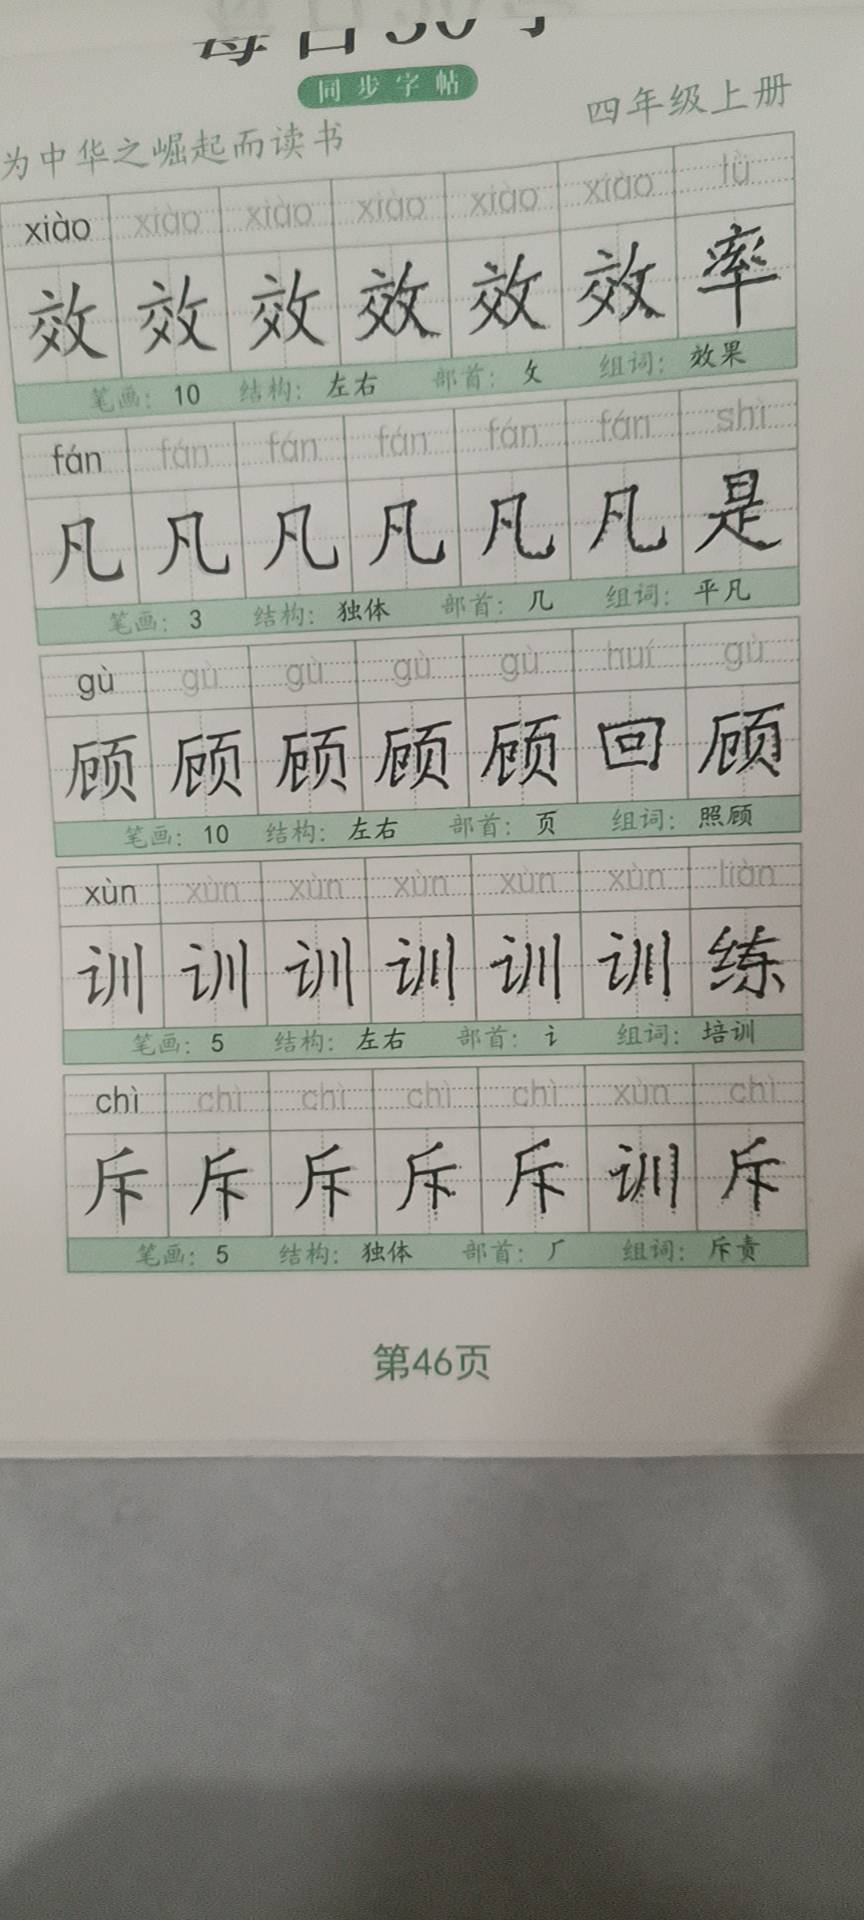 每日30字
同步字帖
四年级上册
为中华之崛起而读书
xiào xiào xiào xiào xiào xiào lǜ
效 效 效 效 效 效 率
笔画: 10 结构: 左右 部首: 攵 组词: 效果
fán fán fán fán fán fán shì
凡 凡 凡 凡 凡 凡 是
笔画: 3 结构: 独体 部首: 几 组词: 平凡
gù gù gù gù gù huí gù
顾 顾 顾 顾 顾 回 顾
笔画: 10 结构: 左右 部首: 页 组词: 照顾
xùn xùn xùn xùn xùn xùn liàn
训 训 训 训 训 训 练
笔画: 5 结构: 左右 部首: 讠 组词: 培训
chì chì chì chì chì xùn chì
斥 斥 斥 斥 斥 训 斥
笔画: 5 结构: 独体 部首: 厂 组词: 斥责
第46页